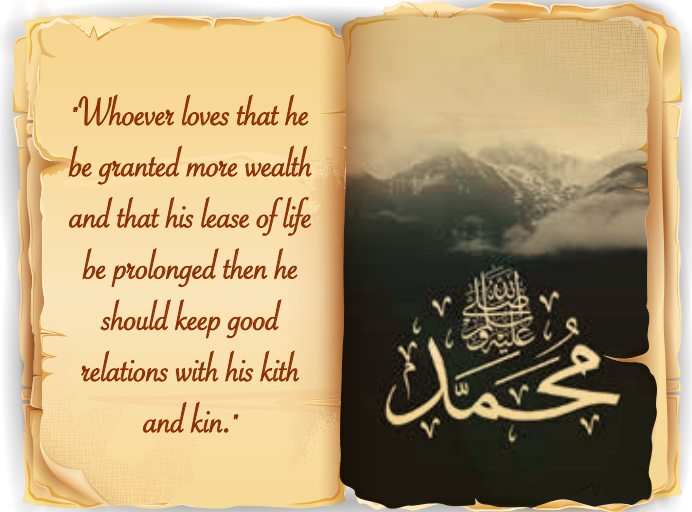 "Whoever loves that he
be granted more wealth
and that his lease of life
be prolonged then he
should keep good
relations with his kith
and kin."
صلى الله عليه وسلم
محمد